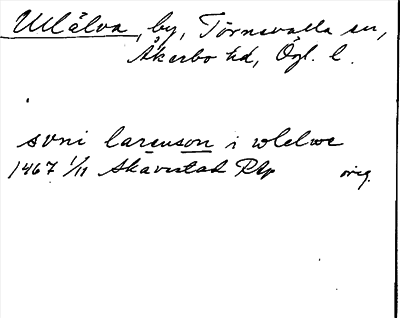 Ullälva, by, Törnevalla sn,
Åkerbo hd, Ögl. l.
svni larenson i vlelwe
1467 1/11 Skavestad RAp orig.